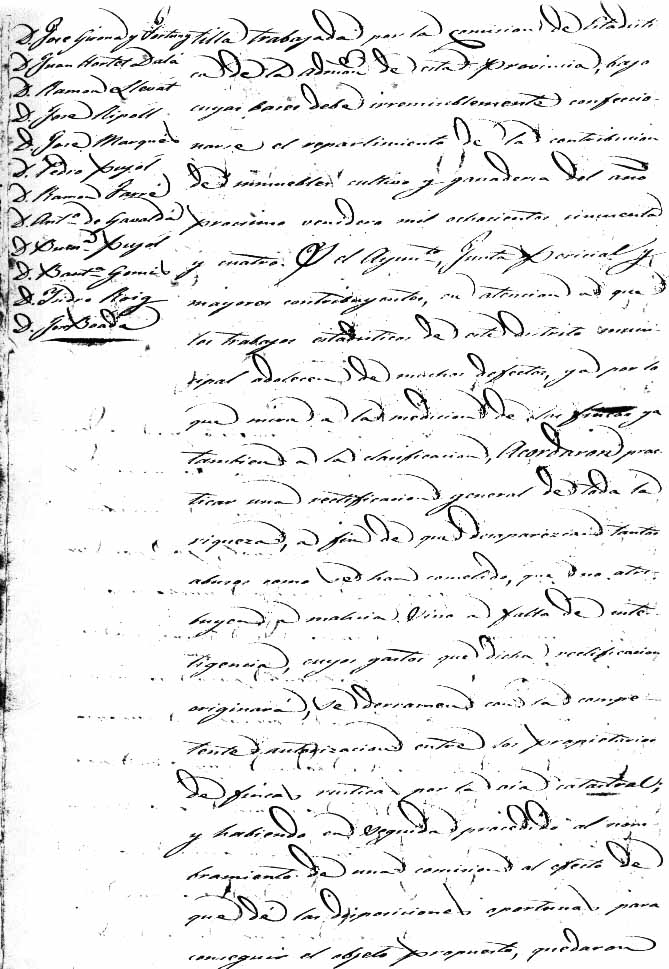 D. Jose Girona y Fortuny
D. Juan Hortet Dalá
D. Ramon Llevat
D. José Ripoll
D. José Marqués
D. Pedro Pujol
D. Ramon Ferré
D. Antº. de Gavaldá
D. Buenª. Pujol
D. Bautª. Gomis
D. Isidro Roig
D. José Boada
tilla trabajada por la comision de Estadisti
ca de la Admon. de esta provincia, bajo
cuyas bases debe irremisiblemente confeccio
narse el repartimiento de la contribucion
de inmuebles cultivo y ganaderia del año
procsimo venidero mil ochocientos cincuenta
y cuatro. Y el Ayuntº., Junta pericial y
mayores contribuyentes, en atencion a que
los trabajos estadisticos de este distrito muni
cipal adolecen de muchos defectos, ya por lo
que mira a la medicion de sus fincas, ya
tambien a la clasificacion, Acordaron prac
ticar una rectificacion general de toda la
riqueza, a fin de que desaparezcan tantos
abusos como se han cometido, que no atri
buyen a malicia sino a falta de inte
ligencia, cuyos gastos que dicha rectificacion
originará, se derramen con la compe
tente autorizacion entre los propietarios
de fincas rusticas por la via catastral;
y habiendo en seguida procedido al nom
bramiento de una comision al efecto de
que dé las disposiciones oportunas para
conseguir el objeto propuesto, quedaron